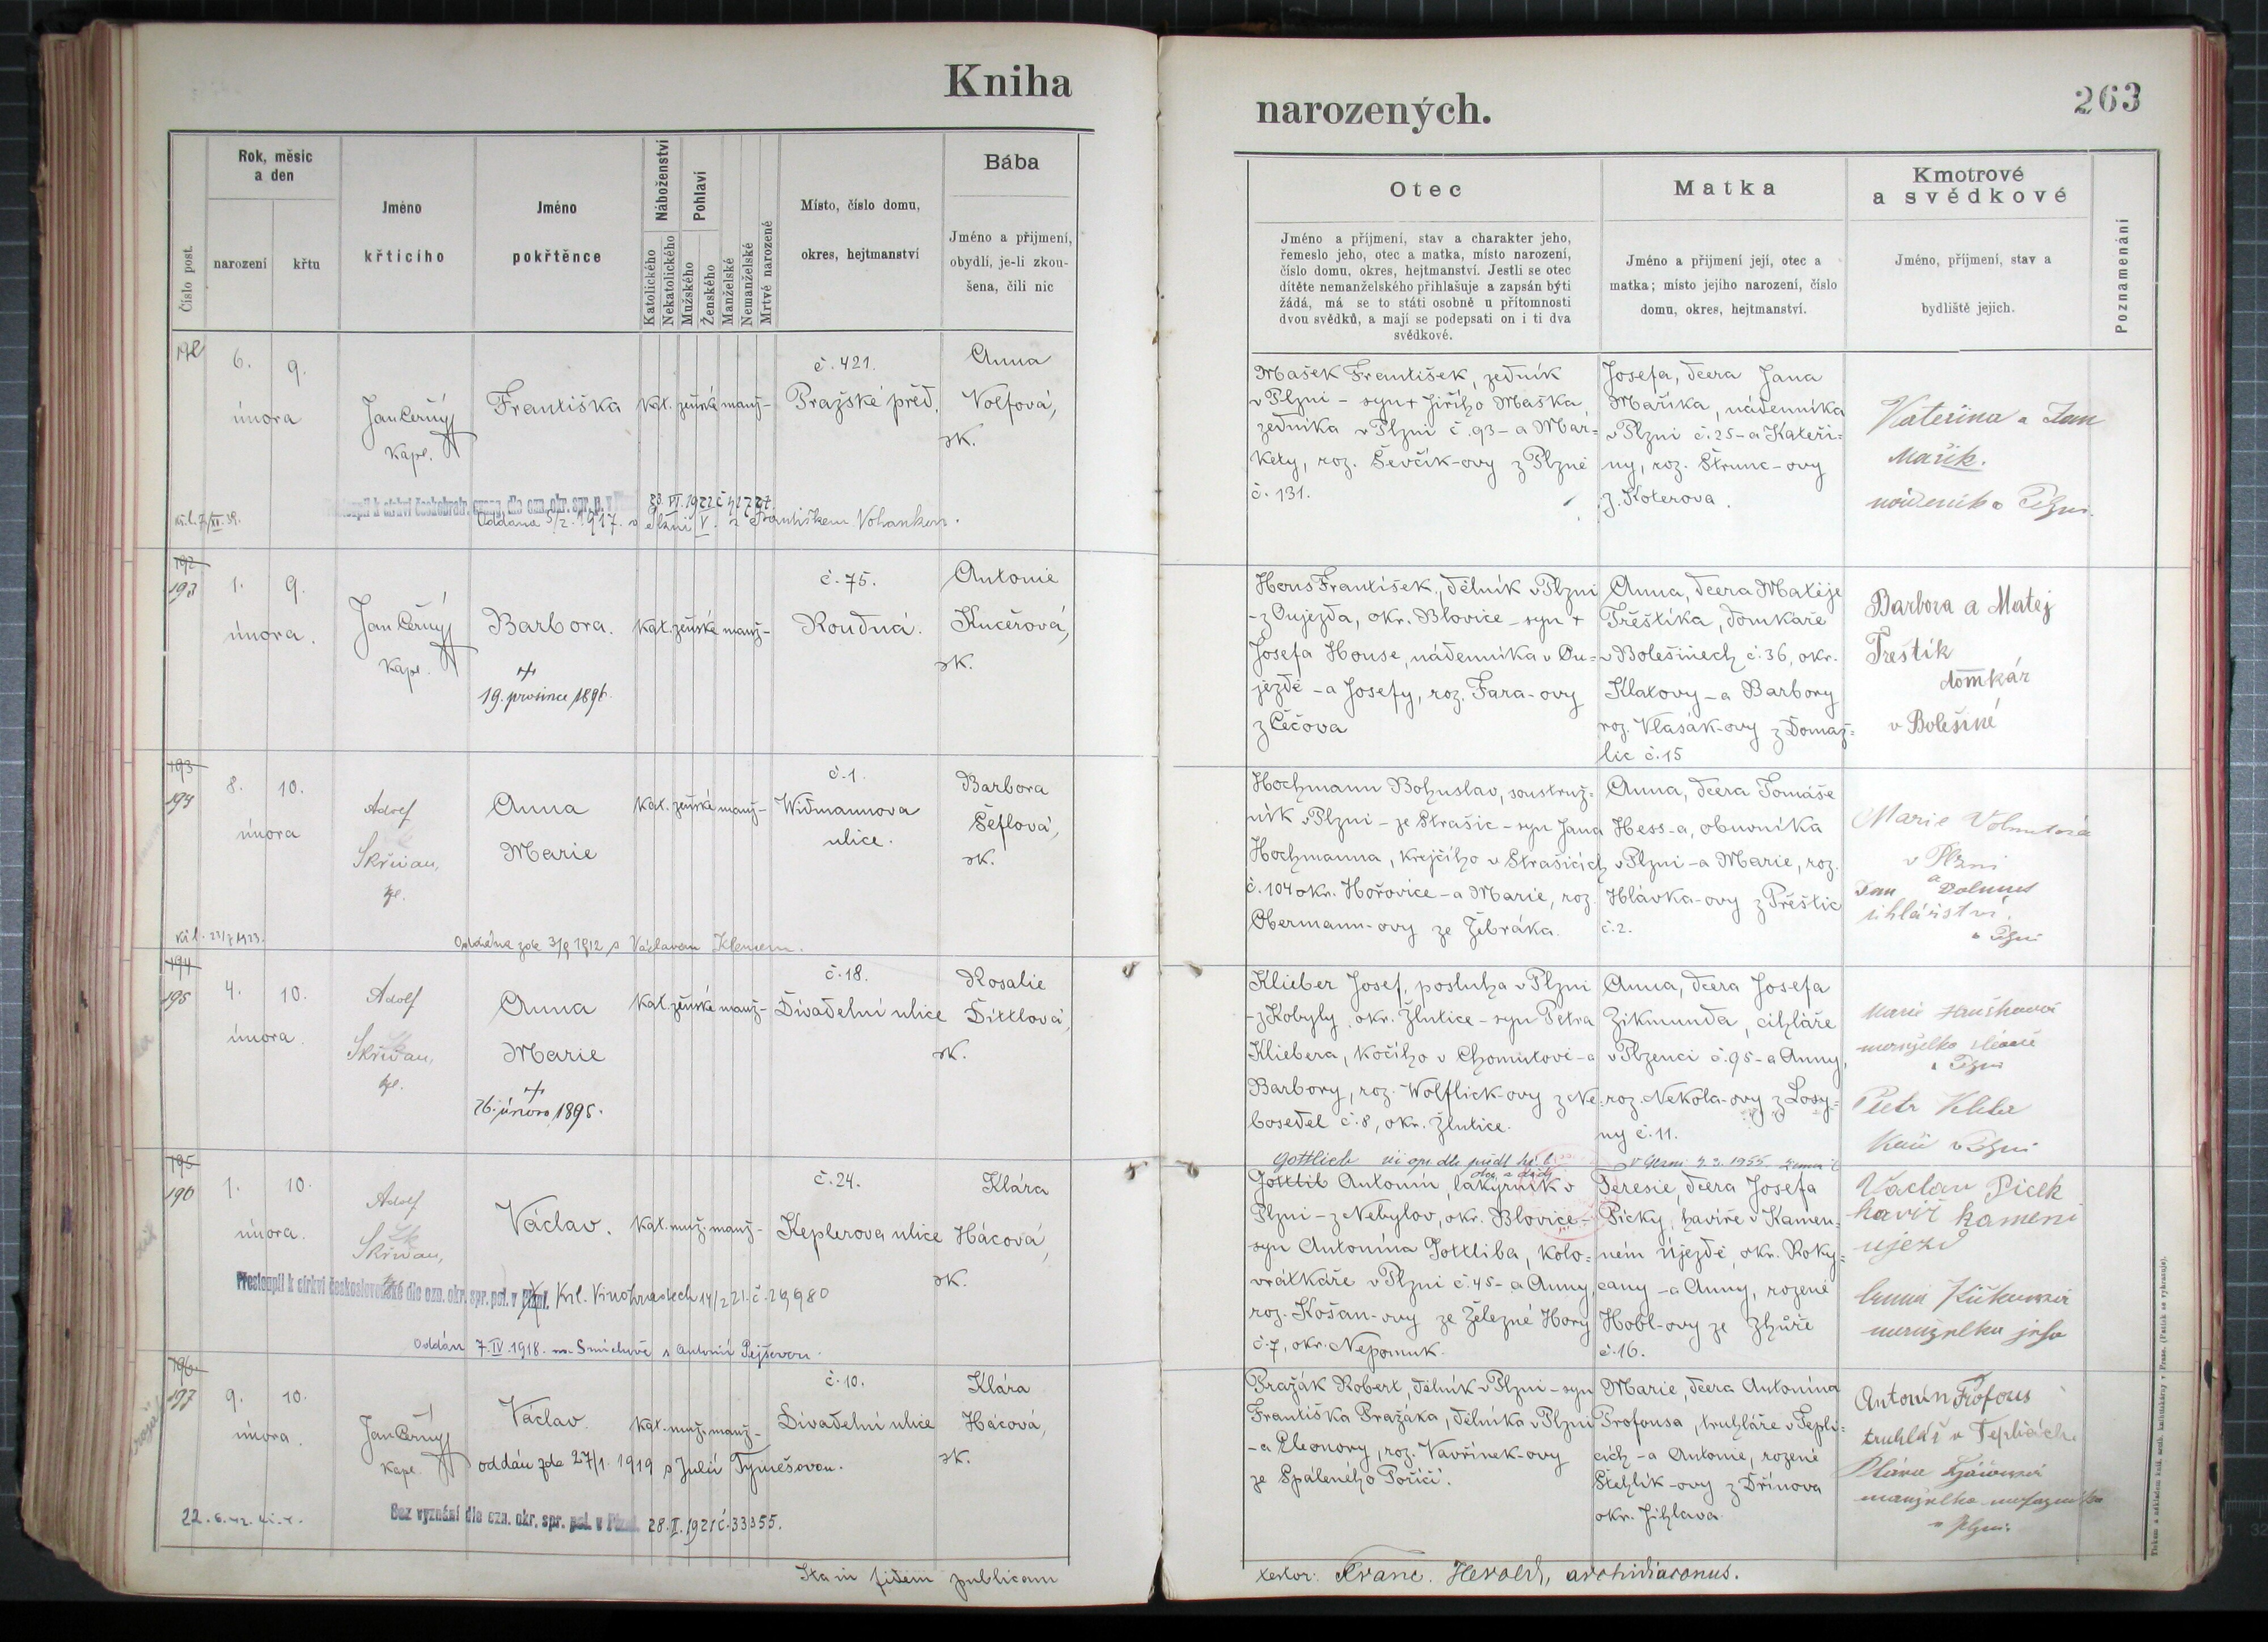 Kniha
narozených.
263
Číslo post.
Rok, měsíc
a den
narození
křtu
Jméno
křtícího
Jméno
pokřtěnce
Náboženství
Katolického
Nekatolického
Pohlaví
Mužského
Ženského
Manželské
Nemanželské
Mrtvě narozené
Místo, číslo domu,
okres, hejtmanství
Bába
Jméno a přijmení,
obydlí, je-li zkou-
šena, čili nic
Otec
Jméno a příjmení, stav a charakter jeho,
řemeslo jeho, otec a matka, místo narození,
číslo domu, okres, hejtmanství. Jestli se otec
dítěte nemanželského přihlašuje a zapsán býti
žádá, má se to státi osobně u přítomnosti
dvou svědků, a mají se podepsati on i ti dva
svědkové.
Matka
Jméno a přijmení její, otec a
matka; místo jejího narození, číslo
domu, okres, hejtmanství.
Kmotrové
a svědkové
Jméno, příjmení, stav a
bydliště jejich.
Poznamenání
192
6. 9.
února
Jan Černý
Kapl.
Františka
Kat. ženské manž-
č. 421.
Pražské před.
Anna
Volfová,
zk.
Oddána 5/2. 1917. v Plzni V. s Františkem Vohankou.
Mašek František, zedník
v Plzni - syn + Jiřího Maška,
zedníka v Plzni č. 93 - a Mar=
kety, roz. Ševčík-ovy z Plzně
č. 131.
Josefa, dcera Jana
Maříka, nádenníka
v Plzni č. 25 - a Kateři=
ny, roz. Štrunc-ovy
z Koterova.
Kateřina a Jan
Mařík.
192
193
1. 9.
února.
Jan Černý
Kapl.
Barbora.
+
19. prosince 1896.
Kat. ženské manž-
č. 75.
Roudná.
Antonie
Kučerová,
zk.
Hous František, dělník v Plzni
- z Oujezda, okr. Blovice - syn +
Josefa House, nádenníka v Ou-
jezdě - a Josefy, roz. Fara-ovy
z Čéčova
Anna, dcera Matěje
Třeštíka, domkáře
v Bolešinech č. 36, okr.
Klatovy - a Barbory
roz. Vlasák-ovy z Domaž=
lic č. 15
Barbora a Matej
Třestik
domkár
v Bolešiné
193
194
8. 10.
února
Adolf
Skřivan,
kpl.
Anna
Marie
Kat. ženské manž-
č. 1.
Widmannova
ulice.
Barbora
Šeflová,
zk.
Oddána zde 3/9 1912 s Václavem Klemem.
Hochmann Bohuslav, soustruž=
ník v Plzni - ze Strašic - syn Jana
Hochmanna, krejčího v Strašicích
č. 104 okr. Hořovice - a Marie, roz.
Obermann-ovy ze Žebráka.
Anna, dcera Tomáše
Hess-a, obuvníka
v Plzni - a Marie, roz.
Hlávka-ovy z Přeštic
č. 2.
Marie
v Plzni
a
Jan
v Plzni
194
195
4. 10.
února.
Adolf
Skřivan,
kpl.
Anna
Marie
+
26. února 1895.
Kat. ženské manž-
č. 18.
Divadelní ulice
Rosalie
Dittlová,
zk.
Klieber Josef, posluha v Plzni
- z Kobyly, okr. Žlutice - syn Petra
Kliebera, kočího v Chomutově - a
Barbory, roz. Wolflick-ovy z Ne=
bosedel č. 8, okr. Žlutice.
Anna, dcera Josefa
Zikmunda, cihláře
v Plzenci č. 95 - a Anny,
roz. Nekola-ovy z Losy=
ny č. 11.
Marie
manželka
v Plzni
Petr
v Plzni
195
196
1. 10.
února.
Adolf
Skřivan,
Václav.
Kat. muž. manž-
č. 24.
Keplerova ulice
Klára
Hácová,
zk.
Přestoupil k církvi československé dle ozn. okr. spr. pol. v Plzni. Král. Vinohradech 14/2 21. č. 29980
Oddán 7. IV. 1918. na Smíchově s Antonií Pejšovou.
Gottlieb
Gottlib Antonín, lakýrník v
Plzni - z Nebylov, okr. Blovice -
syn Antonína Gottliba, kolo=
vrátkáře v Plzni č. 45 - a Anny,
roz. Košan-ovy ze Železné Hory
č. 7, okr. Nepomuk.
Teresie, dcera Josefa
Picky, havíře v Kamen=
ném Újezdě, okr. Roky=
cany - a Anny, rozené
Hobl-ovy ze Zhůře
č. 16.
Vaclav Picek
havíř kameni
ujezd
manzelka jeho
196
197
9. 10.
února.
Jan Černý
Kapl.
Václav.
Kat. muž. manž-
č. 10.
Divadelní ulice
Klára
Hácová,
zk.
oddán zde 27/1. 1919 s Julií Tymešovou.
Bez vyznání dle ozn. okr. spr. pol. v Plzni. 28. II. 1921 č. 33355.
Pražák Robert, dělník v Plzni - syn
Františka Pražáka, dělníka v Plzni
- a Eleonory, roz. Vavřinek-ovy
ze Spáleného Poříčí.
Marie, dcera Antonína
Profousa, truhláře v Tepli=
cích - a Antonie, rozené
Stehlík-ovy z Dřínova
okr. Jihlava.
Antonín Profous
truhlář v Teplicích
v Plzni.
Ita in fidem publicam
testor: Franc. Herold, archidiaconus.